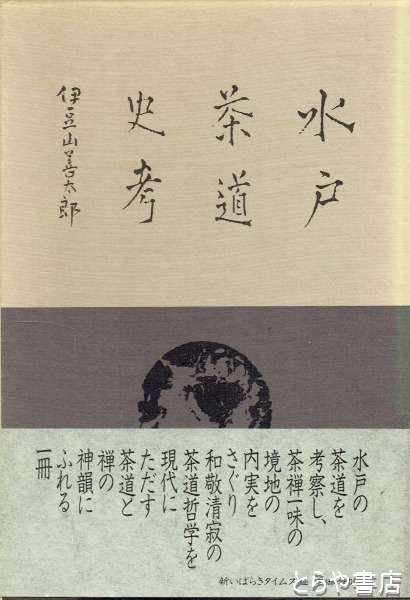 水戸
茶道
史考
伊豆山善太郎
水戸の
茶道を
考察し、
茶禅一味の
境地の
内実を
さぐり
和敬清寂の
茶道哲学を
現代に
ただす
茶道と
禅の
神韻に
ふれる
一冊
新いばらきタイムス社
とらや書店